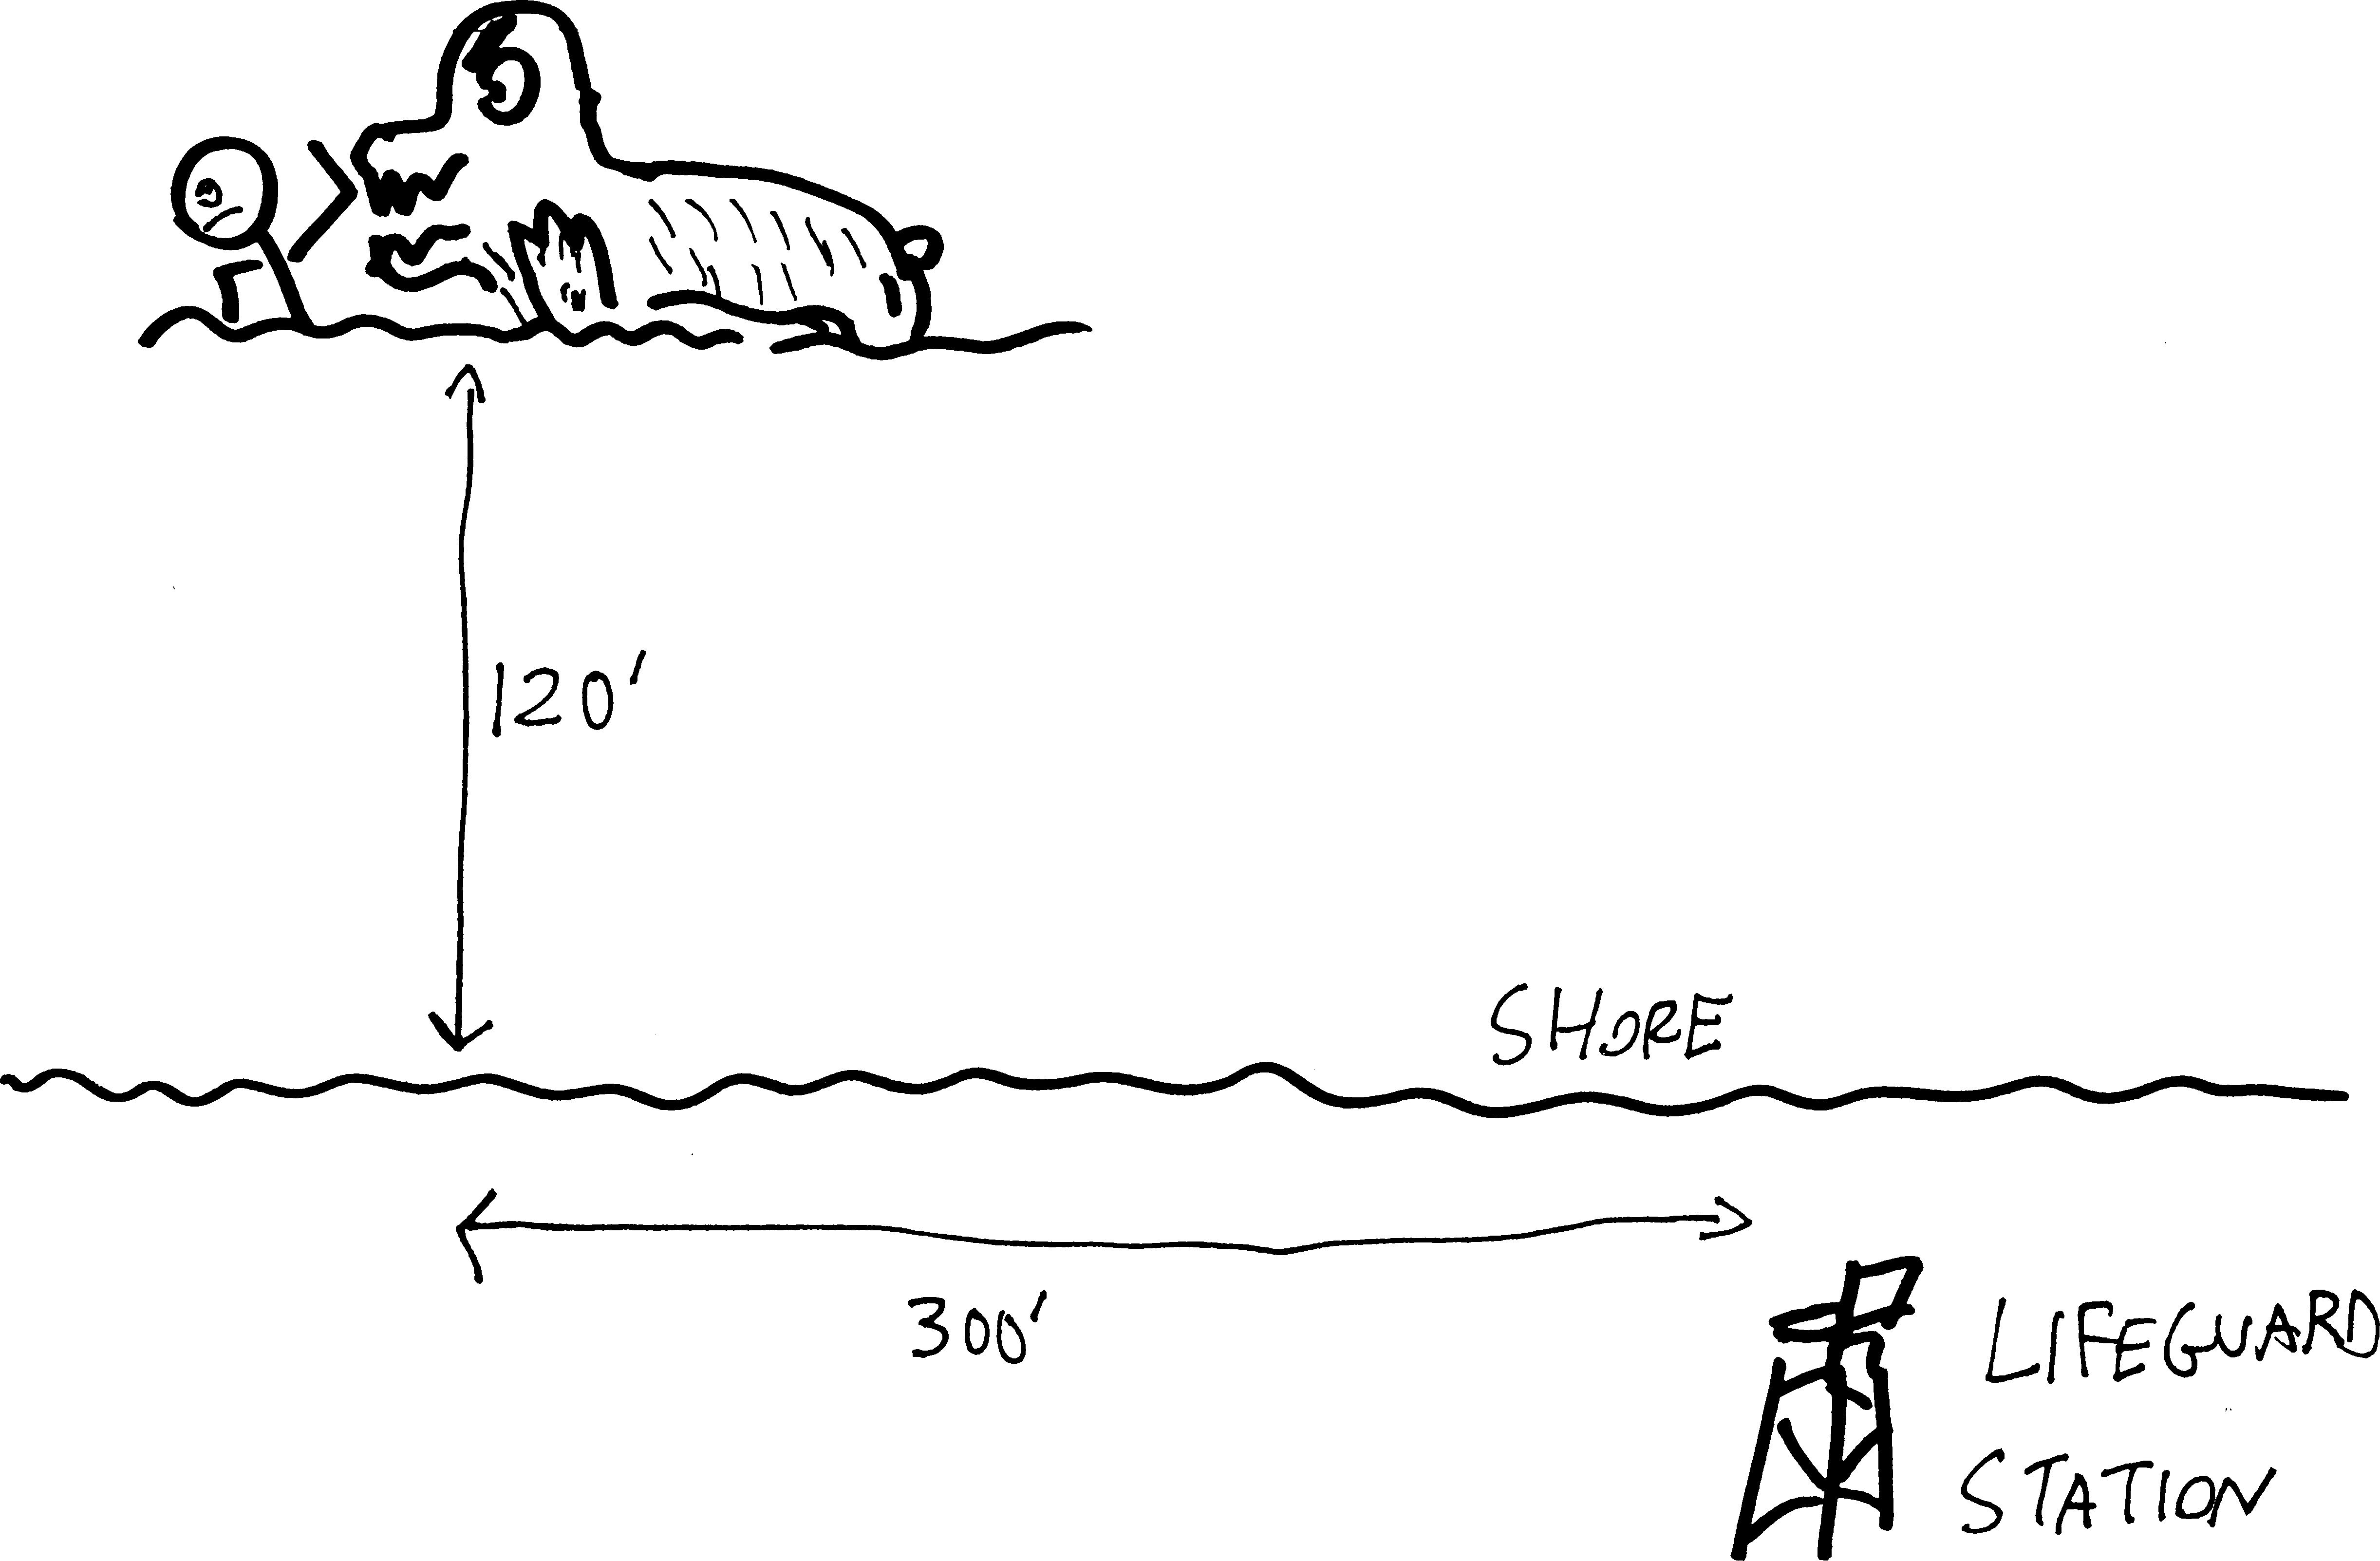 120'
SHORE
300'
LIFEGUARD
STATION